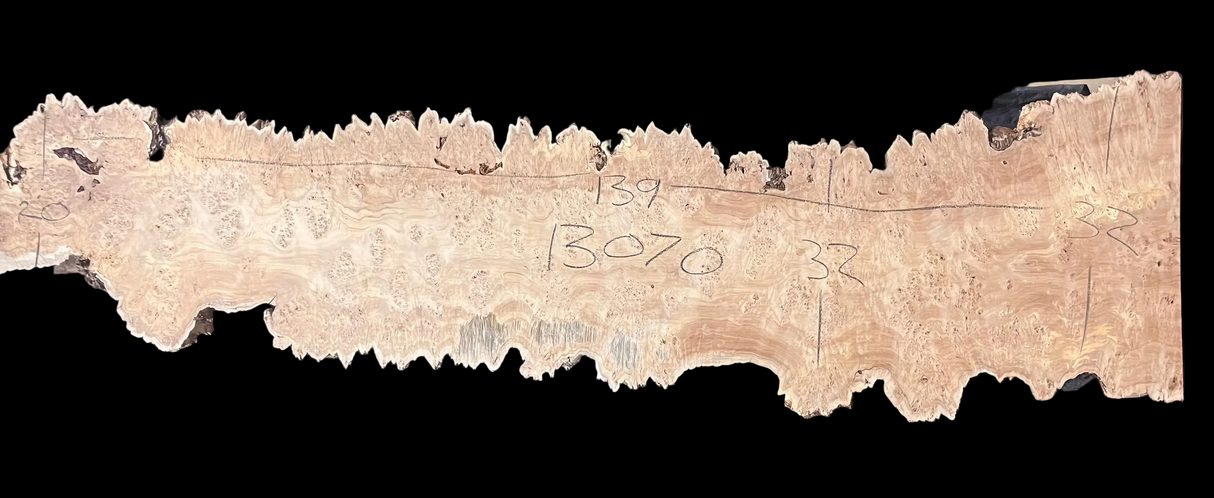 139
20
13070
32
32